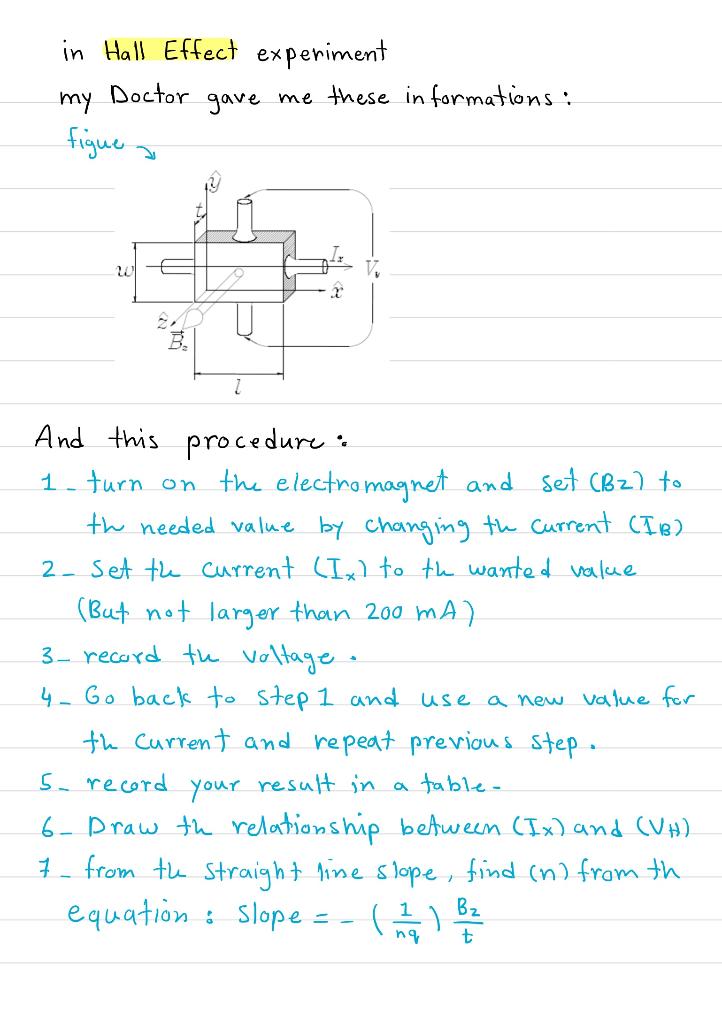 in Hall Effect experiment
my Doctor gave me these informations :
figue
ŷ
t
w
Iₓ
V
x̂
ẑ
B⃗z
l
And this procedure :
1 - turn on the electromagnet and set (Bz) to
the needed value by changing the current (IB)
2 - Set the current (Ix) to the wanted value
(But not larger than 200 mA)
3 - record the voltage .
4 - Go back to step 1 and use a new value for
th current and repeat previous step .
5 - record your result in a table -
6 - Draw the relationship between (Ix) and (VH)
7 - from the straight line slope, find (n) from th
equation : slope = - (1/nq) Bz/t